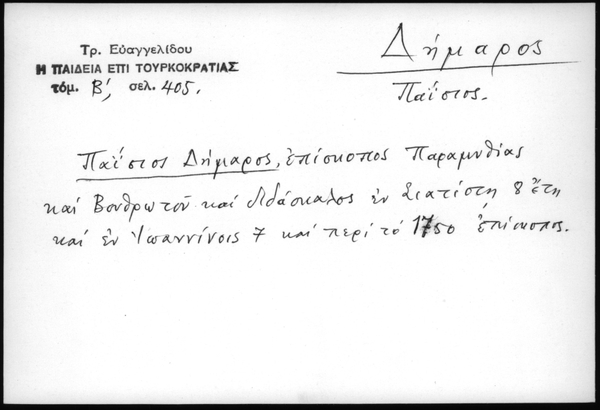 Τρ. Εὐαγγελίδου
Η ΠΑΙΔΕΙΑ ΕΠΙ ΤΟΥΡΚΟΚΡΑΤΙΑΣ
τόμ. Β΄, σελ. 405.
Δήμαρος
Παΐσιος.
Παΐσιος Δήμαρος, ἐπίσκοπος Παραμυθίας
καί Βουθρωτοῦ καί διδάσκαλος ἐν Σιατίστῃ 8 ἔτη
καί ἐν Ἰωαννίνοις 7 καί περί τό 1750 ἐπίσκοπος.